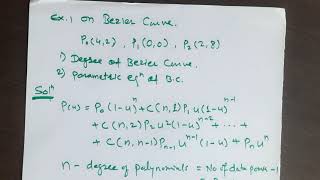 Ex. 1 on Bezier Curve.
P₀(4,2) , P₁(0,0) , P₂(2,8)
1) Degree of Bezier Curve.
2) Parametric eqⁿ of B.C.
Solⁿ
P(u) = P₀(1-u)ⁿ + C(n,1) P₁ u(1-u)ⁿ⁻¹
+ C(n,2) P₂ u²(1-u)ⁿ⁻² + ... +
+ C(n,n-1) Pₙ₋₁ uⁿ⁻¹(1-u) + Pₙ uⁿ
n - degree of polynomials = No of data -1